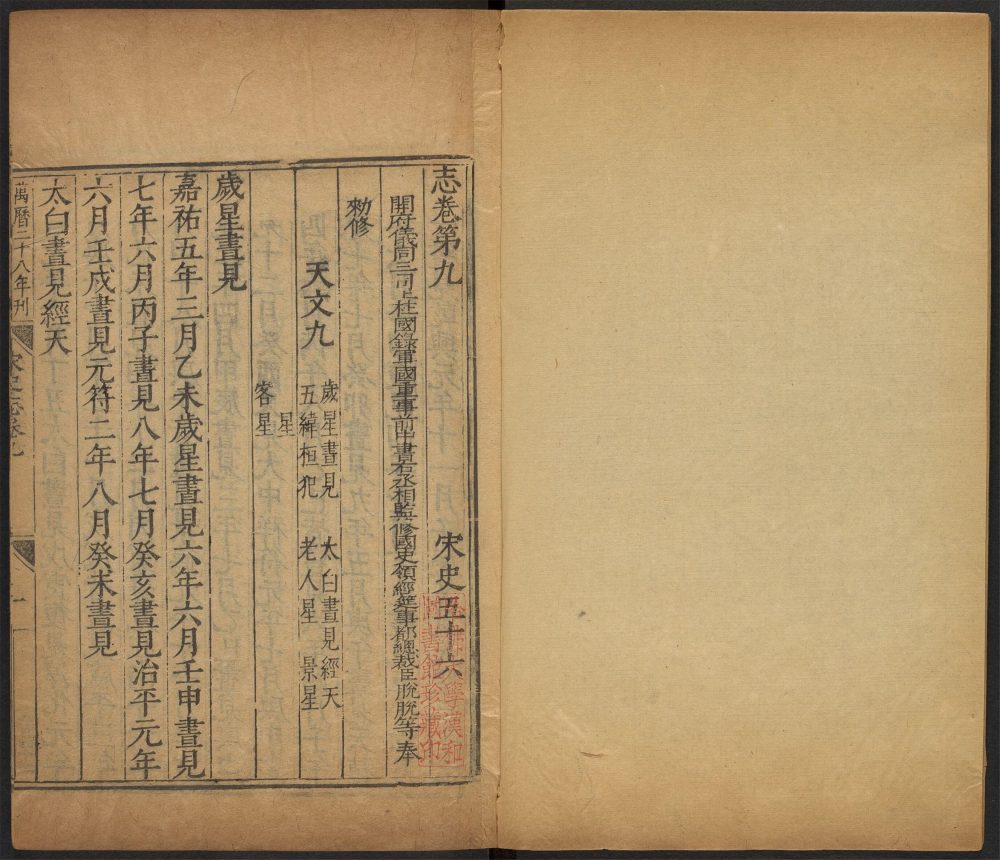 志卷第九
宋史五十六
開府儀同三司上柱國錄軍國重事前中書右丞相監修國史領經筵事都總裁臣脫脫等奉
勑修
天文九
歲星晝見
太白晝見經天
五緯相犯
老人星
景星
客星
歲星晝見
嘉祐五年三月乙未歲星晝見六年六月壬申晝見
七年六月丙子晝見八年七月癸亥晝見治平元年
六月壬戌晝見元符二年八月癸未晝見
太白晝見經天
萬曆二十八年刊
宋史志卷九
一
哈佛大學漢和
圖書館珍藏印